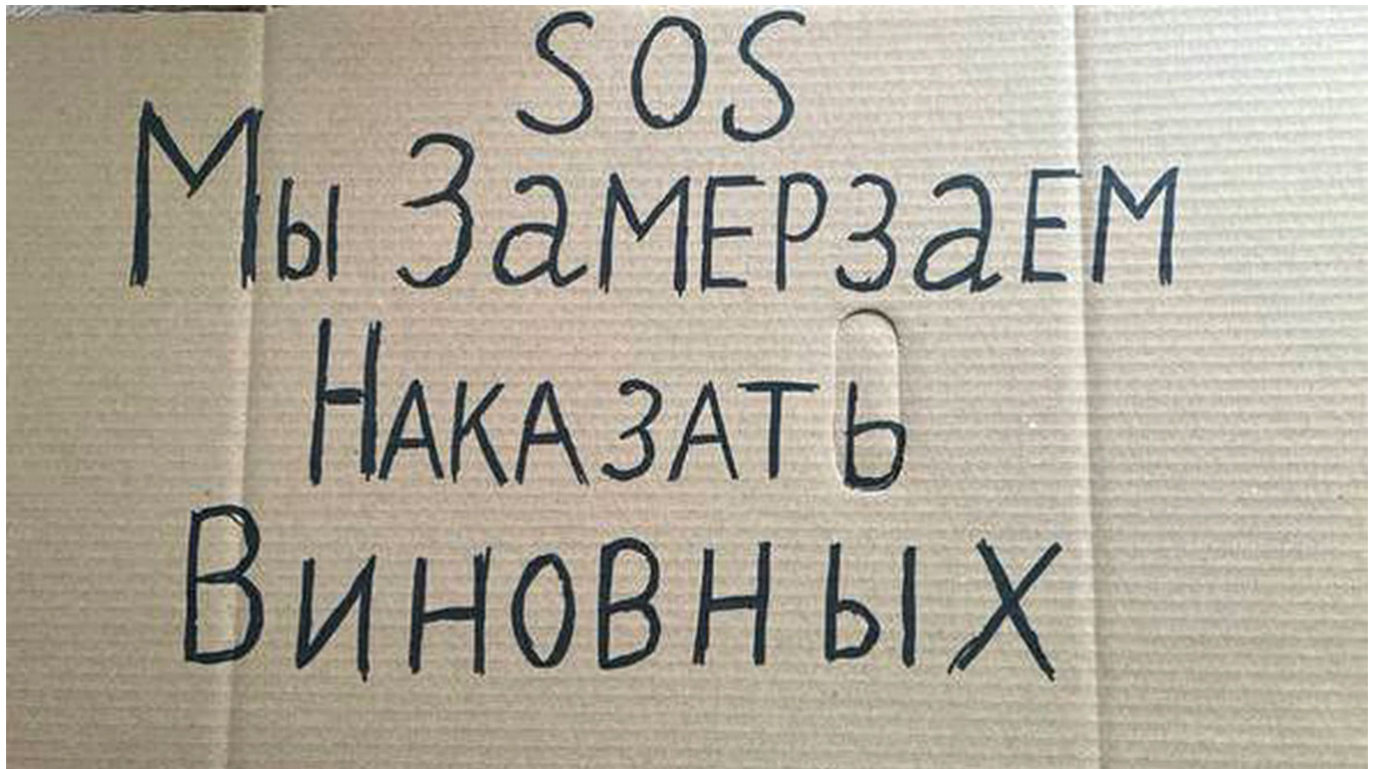 SOS
Мы Замерзаем
Наказать
Виновных